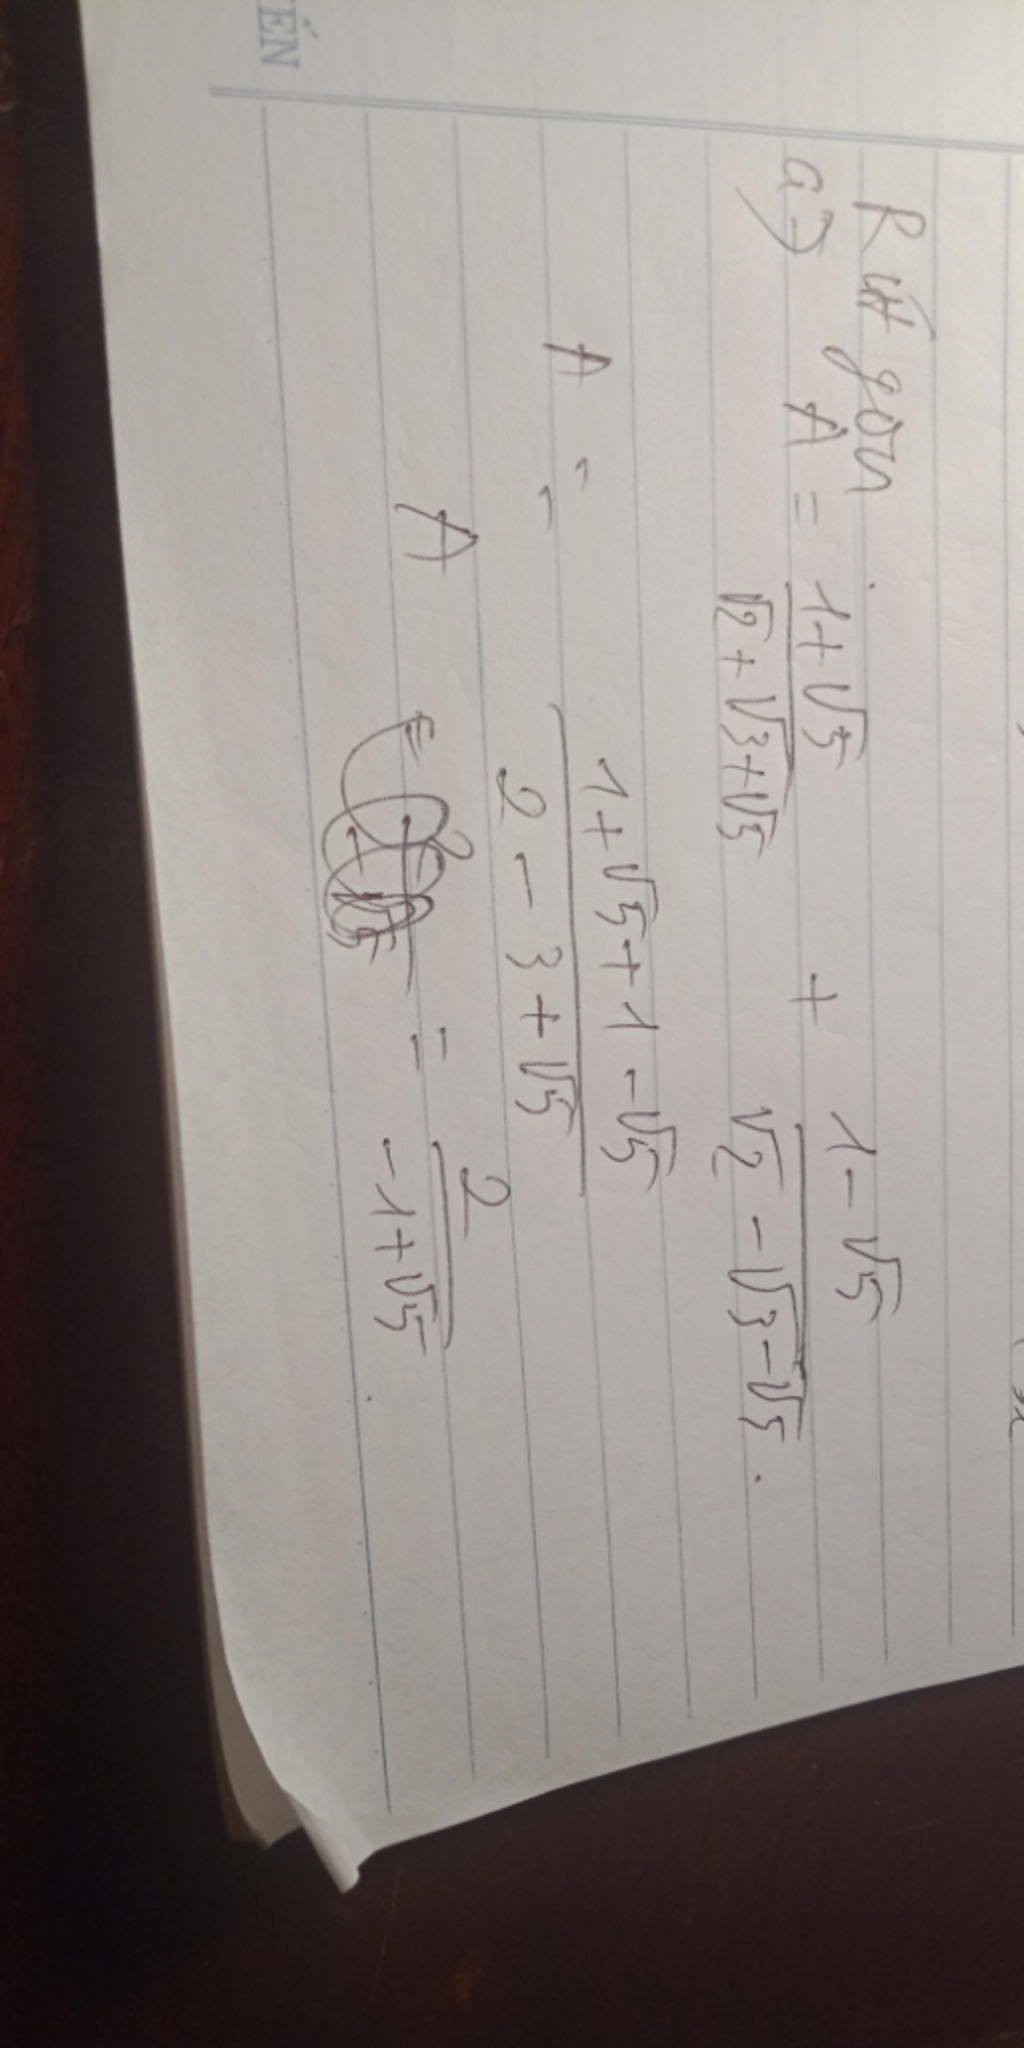 ẾN
Rút gọn
a) A = \frac{1+√5}{√2 + √3+√5} + \frac{1-√5}{√2 - √3-√5}.
A = \frac{1+√5+1-√5}{2 - 3+√5}
A = \frac{2}{-1+√5}